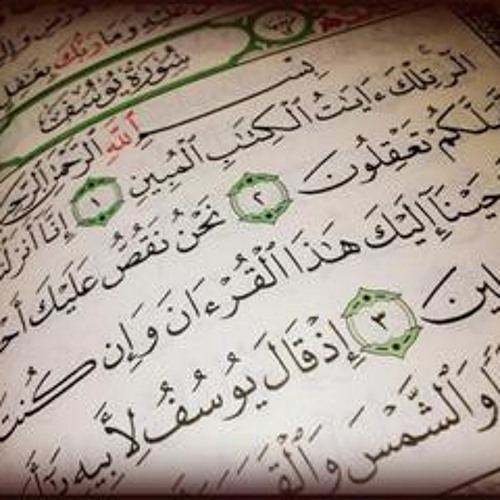 عليه وما ربك بغافل
سورة يوسف
بسم الله الرحمن الرحيم
الٓر تِلْكَ ءَايَٰتُ ٱلْكِتَٰبِ ٱلْمُبِينِ ١ إِنَّآ أَنزَلْنَٰ
لَّعَلَّكُمْ تَعْقِلُونَ ٢ نَحْنُ نَقُصُّ عَلَيْكَ أَحْ
أَوْحَيْنَآ إِلَيْكَ هَٰذَا ٱلْقُرْءَانَ وَإِن كُنتَ
لِينَ ٣ إِذْ قَالَ يُوسُفُ لِأَبِيهِ يَٰٓأَ
وَٱلشَّمْسَ وَٱلْقَمَرَ